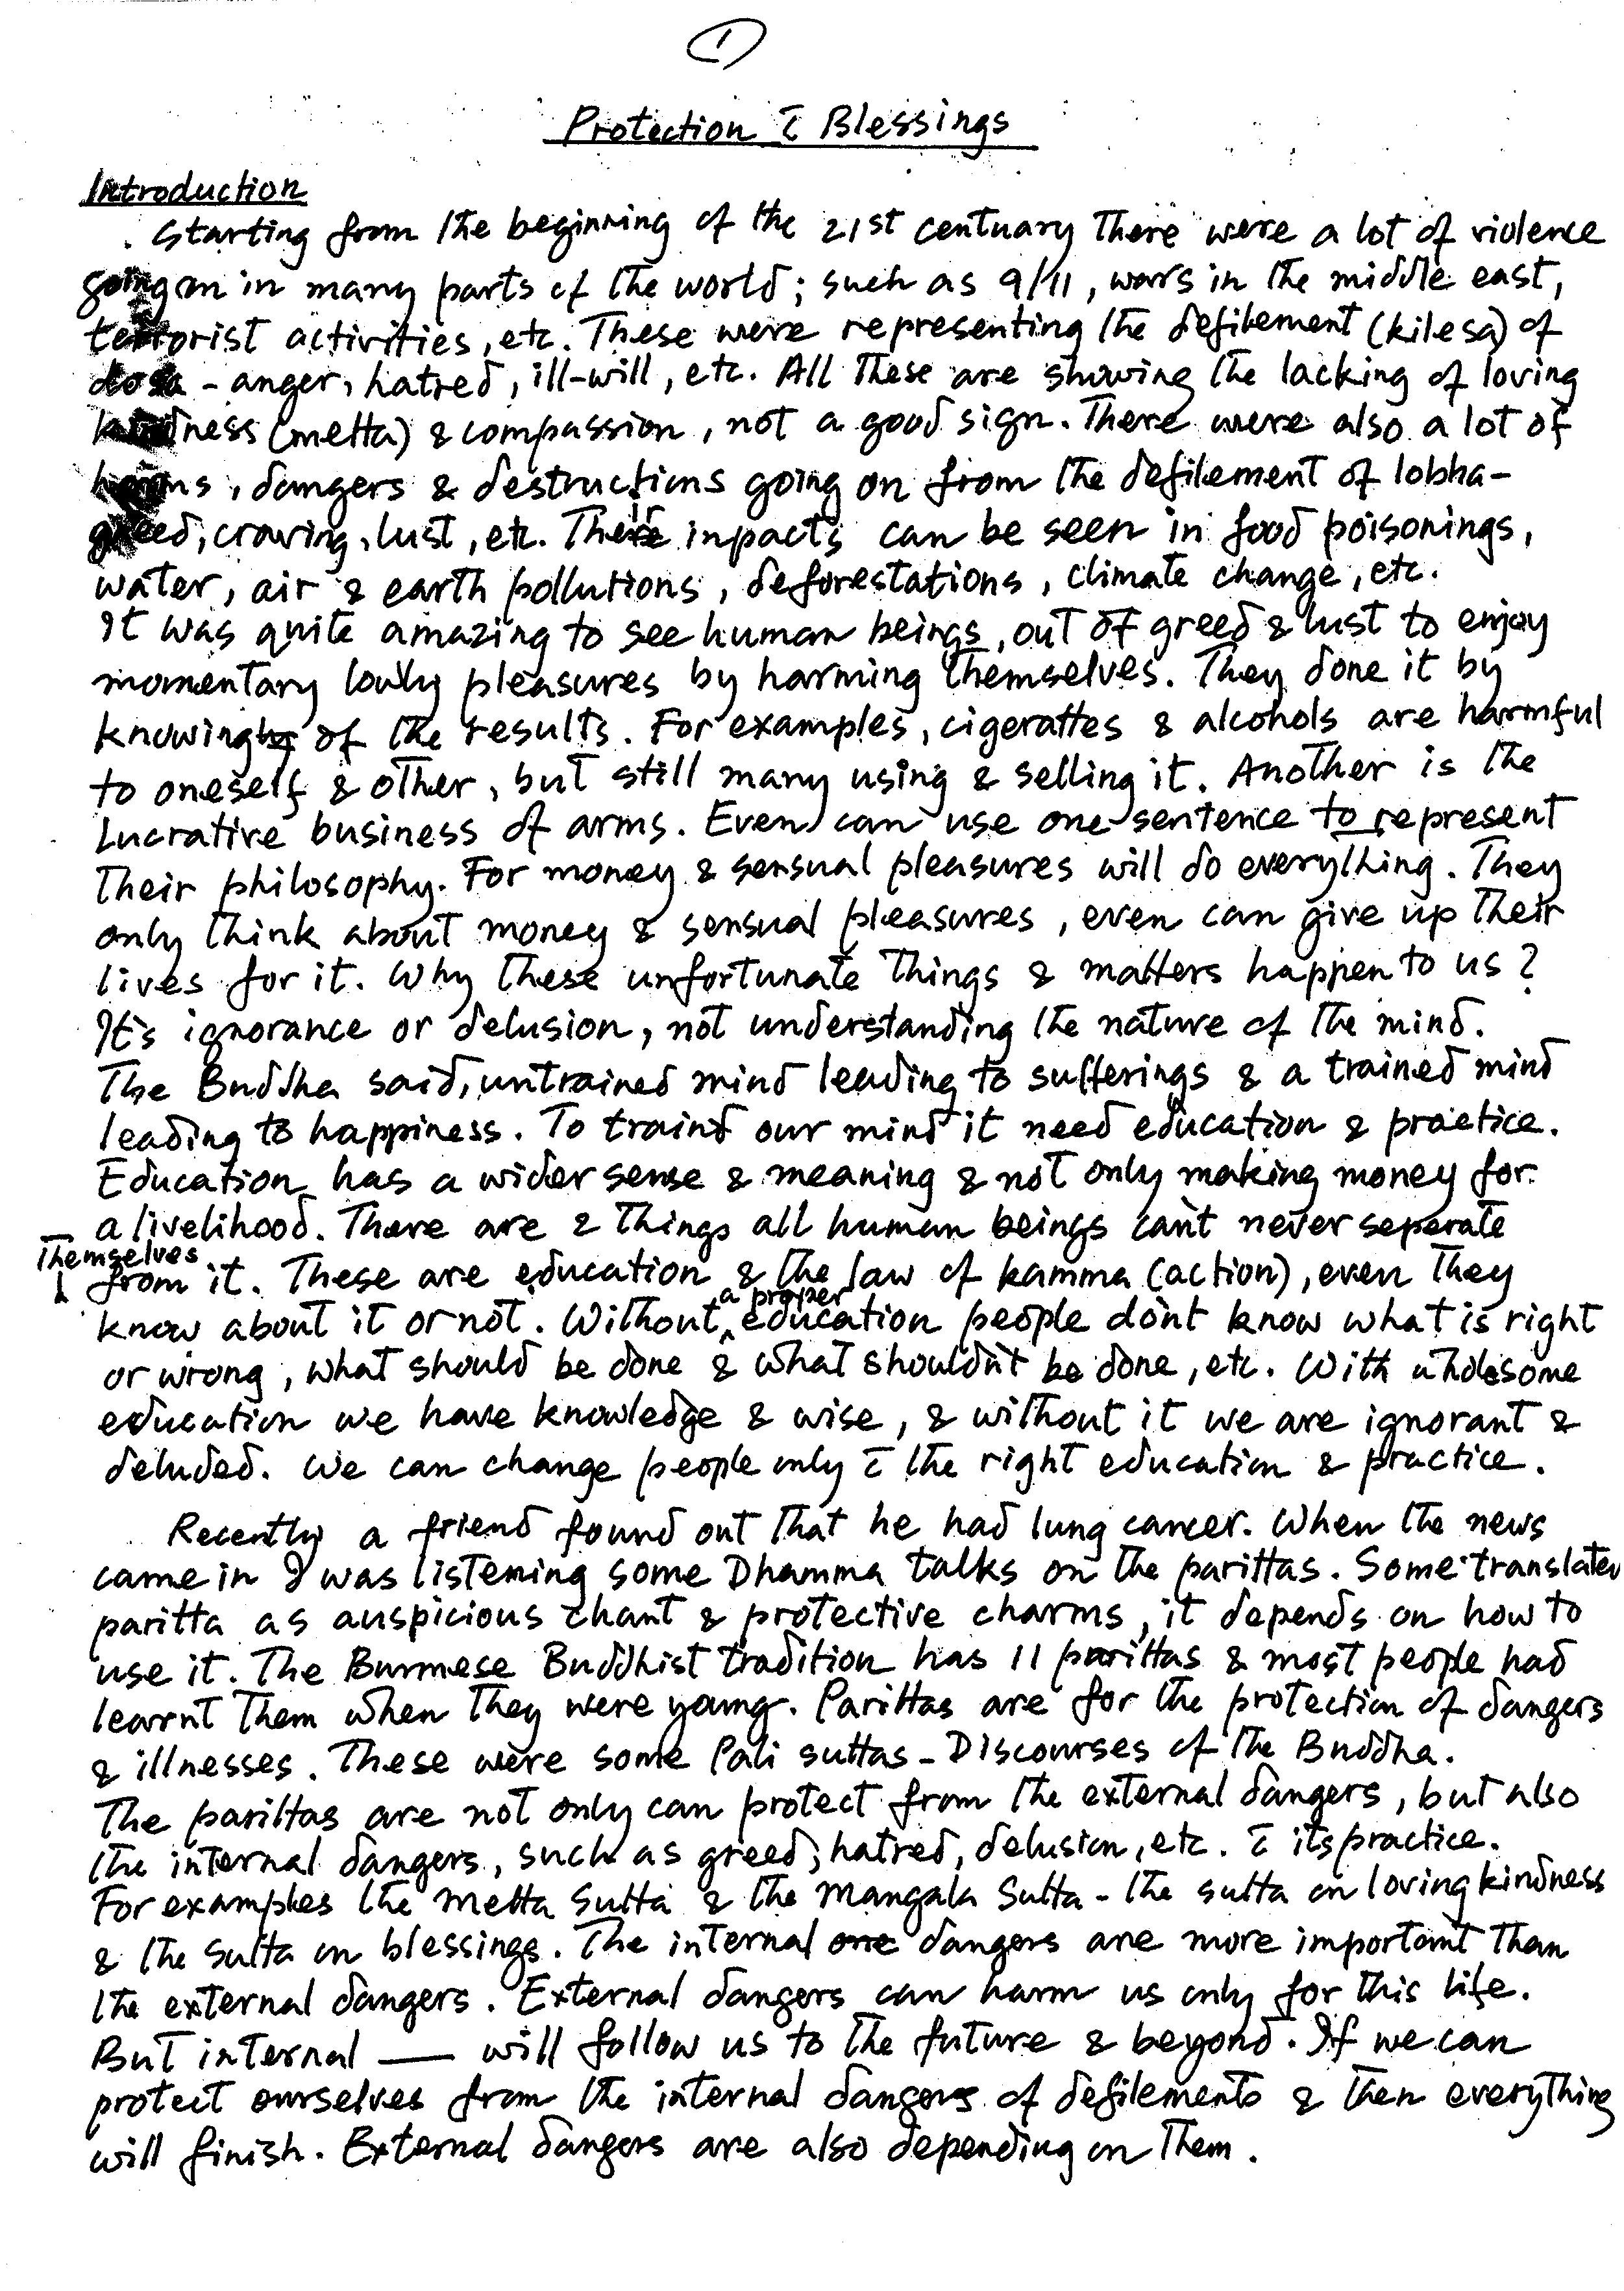 1
Protection c̄ Blessings
Introduction
Starting from the beginning of the 21st centuary there were a lot of violence
going on in many parts of the world; such as 9/11, wars in the middle east,
terrorist activities, etc. These were representing the defilement (kilesa) of
dosa - anger, hatred, ill-will, etc. All these are showing the lacking of loving
kindness (metta) & compassion, not a good sign. There were also a lot of
harms, dangers & destructions going on from the defilement of lobha-
greed, craving, lust, etc. Their inpacts can be seen in food poisonings,
water, air & earth pollutions, deforestations, climate change, etc.
It was quite amazing to see human beings, out of greed & lust to enjoy
momentary lowly pleasures by harming themselves. They done it by
knowing of the results. For examples, cigerattes & alcohols are harmful
to oneself & other, but still many using & selling it. Another is the
lucrative business of arms. Even can use one sentence to represent
their philosophy. For money & sensual pleasures will do everything. They
only think about money & sensual pleasures, even can give up their
lives for it. Why these unfortunate things & matters happen to us?
It's ignorance or delusion, not understanding the nature of the mind.
The Buddha said, untrained mind leading to sufferings & a trained mind
leading to happiness. To traind our mind it need education & practice.
Education has a wider sense & meaning & not only making money for
a livelihood. There are 2 things all human beings can't never seperate
themselves
from it. These are education & the law of kamma (action), even they
know about it or not. Without a proper education people don't know what is right
or wrong, what should be done & what shouldn't be done, etc. With wholesome
education we have knowledge & wise, & without it we are ignorant &
deluded. We can change people only c̄ the right education & practice.
Recently a friend found out that he had lung cancer. When the news
came in I was listening some Dhamma talks on the parittas. Some translated
paritta as auspicious chant & protective charms, it depends on how to
use it. The Burmese Buddhist tradition has 11 parittas & most people had
learnt them when they were young. Parittas are for the protection of dangers
& illnesses. These were some Pali suttas - Discourses of the Buddha.
The parittas are not only can protect from the external dangers, but also
the internal dangers, such as greed, hatred, delusion, etc. c̄ its practice.
For examples the Metta Sutta & the Mangala Sutta - the sutta on loving kindness
& the sutta on blessings. The internal dangers are more important than
the external dangers. External dangers can harm us only for this life.
But internal — will follow us to the future & beyond. If we can
protect ourselves from the internal dangers of defilements & then everything
will finish. External dangers are also depending on them.